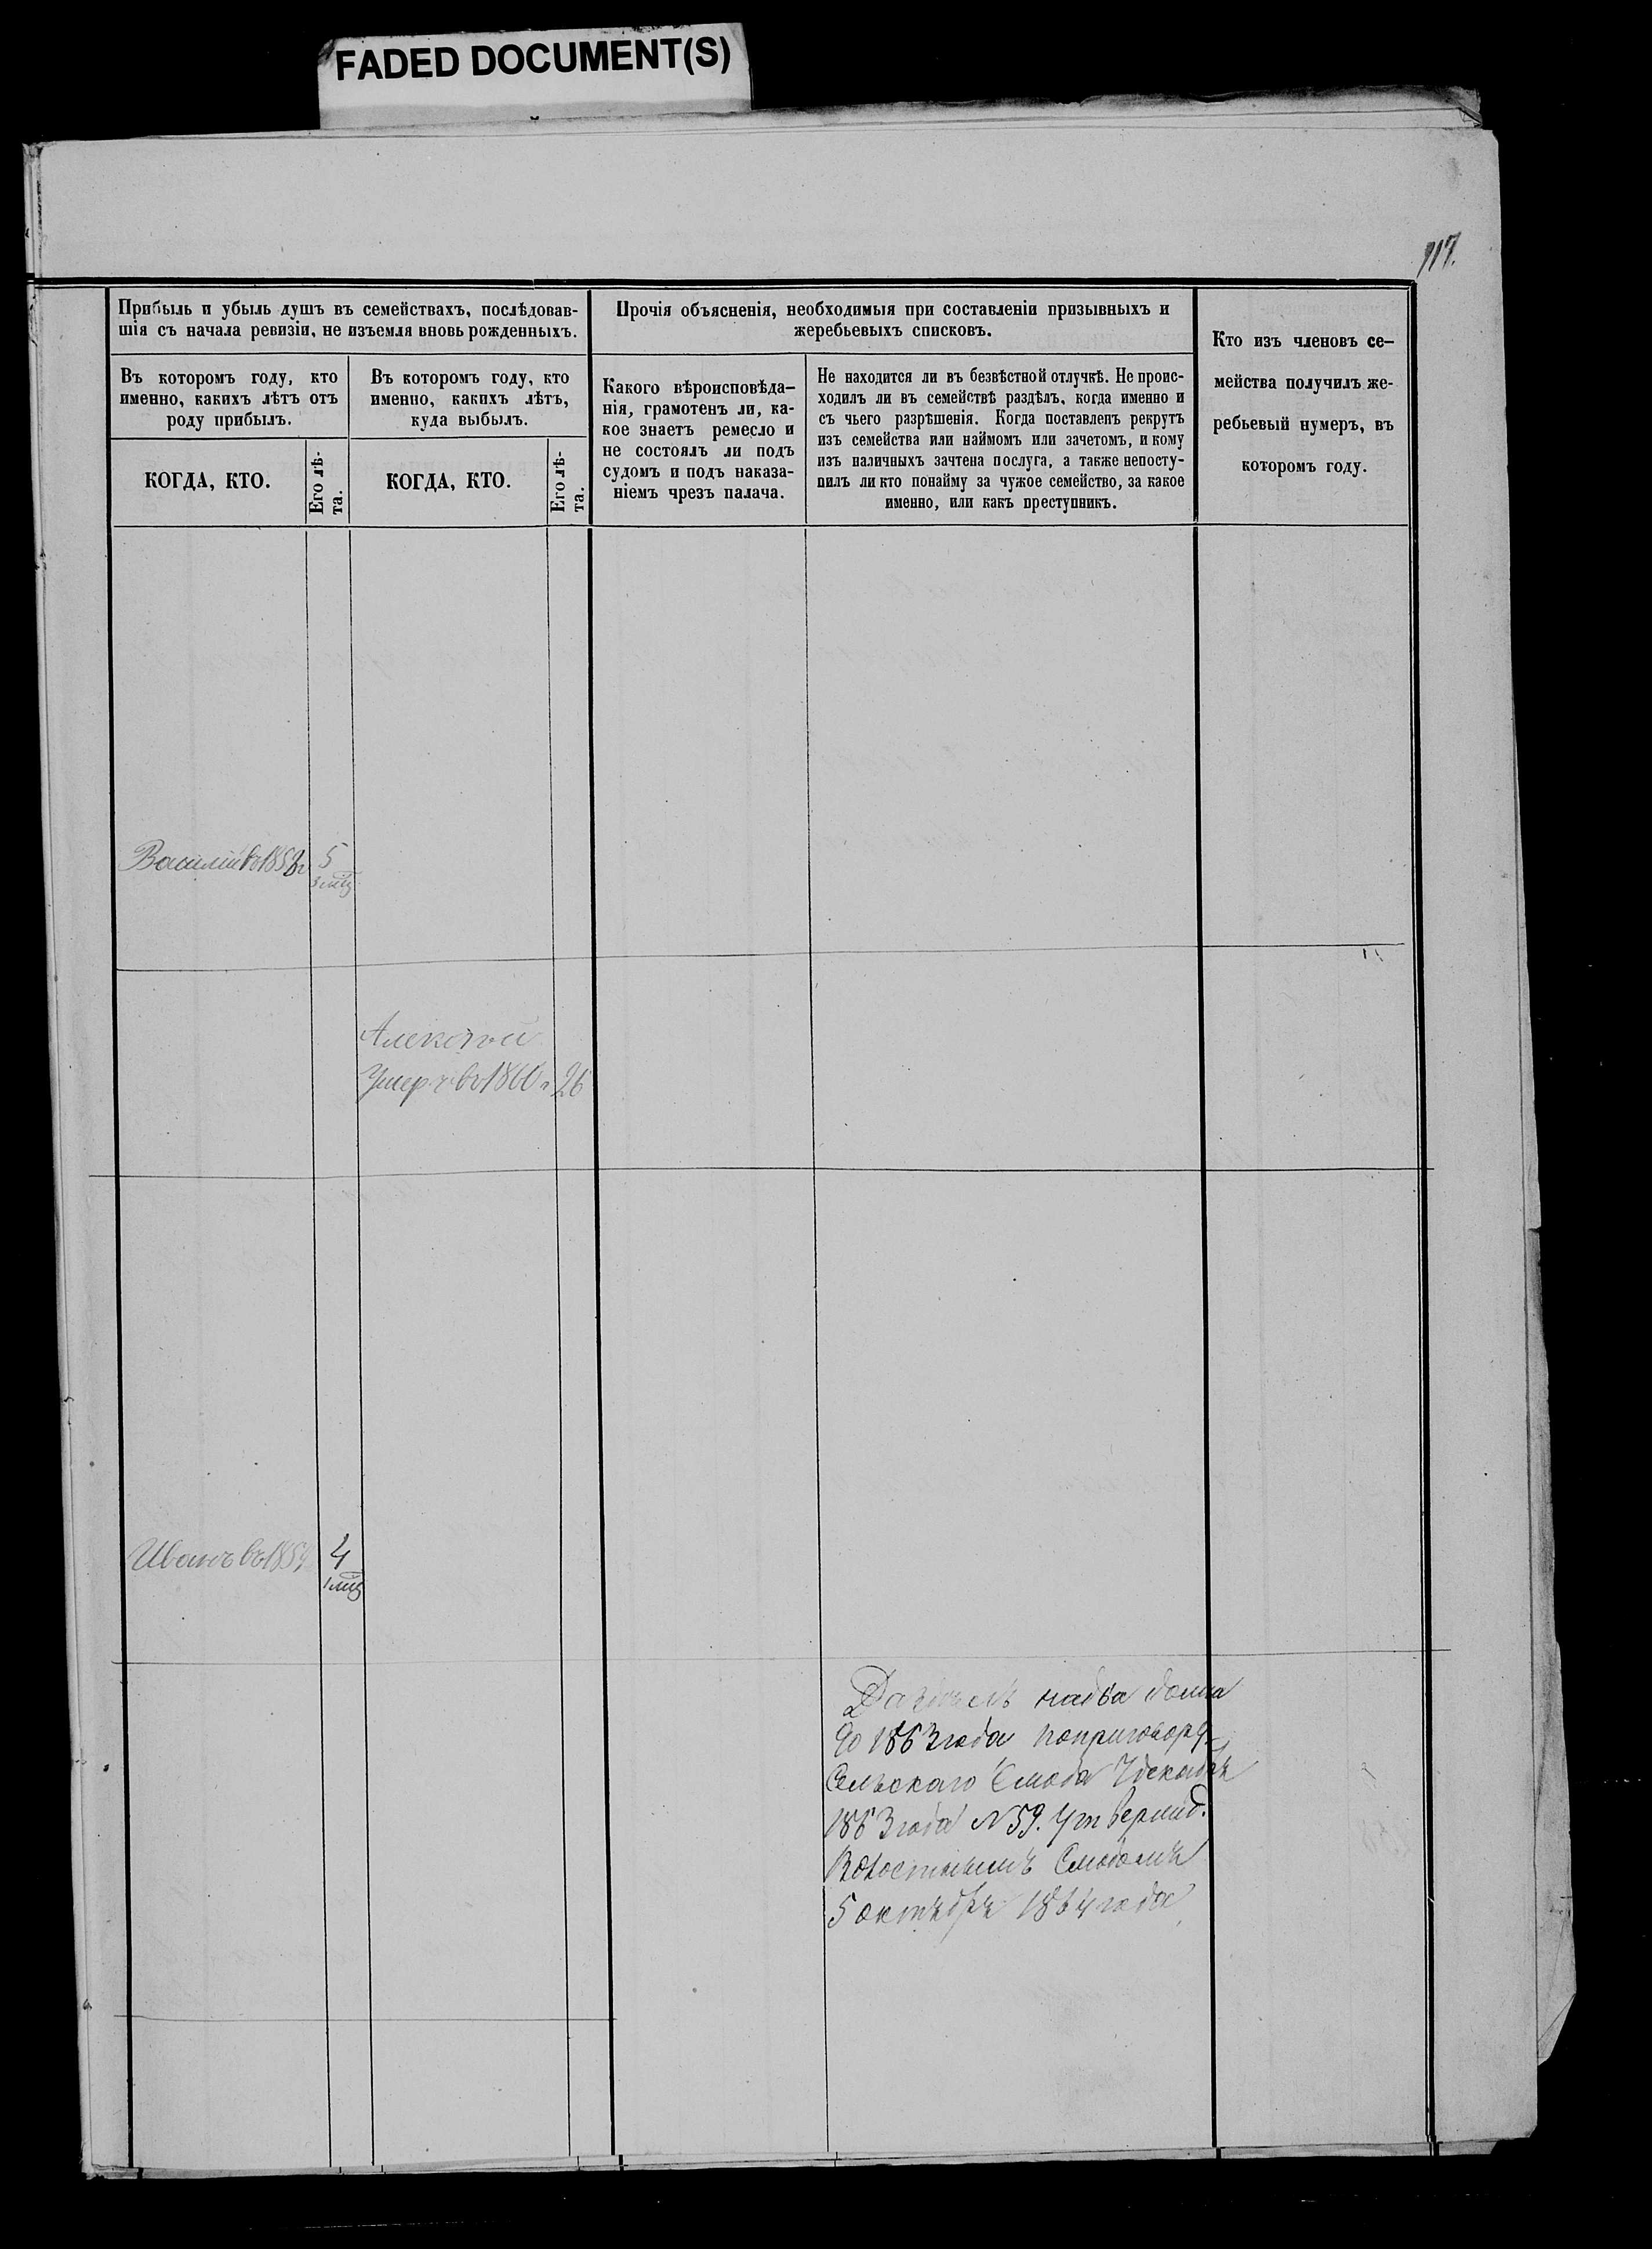 FADED DOCUMENT(S)
117.
Прибыль и убыль душъ въ семействахъ, послѣдовав-
шія съ начала ревизіи, не изъемля вновь рожденныхъ.
Въ которомъ году, кто
именно, какихъ лѣтъ отъ
роду прибылъ.
КОГДА, КТО.
Его лѣ-
та.
Въ которомъ году, кто
именно, какихъ лѣтъ,
куда выбылъ.
КОГДА, КТО.
Его лѣ-
та.
Прочія объясненія, необходимыя при составленіи призывныхъ и
жеребьевыхъ списковъ.
Какого вѣроисповѣда-
нія, грамотенъ ли, ка-
кое знаетъ ремесло и
не состоялъ ли подъ
судомъ и подъ наказа-
ніемъ чрезъ палача.
Не находится ли въ безвѣстной отлучкѣ. Не проис-
ходилъ ли въ семействѣ раздѣлъ, когда именно и
съ чьего разрѣшенія. Когда поставленъ рекрутъ
изъ семейства или наймомъ или зачетомъ, и кому
изъ наличныхъ зачтена послуга, а также непосту-
пилъ ли кто понайму за чужое семейство, за какое
именно, или какъ преступникъ.
Кто изъ членовъ се-
мейства получилъ же-
ребьевый нумеръ, въ
которомъ году.
Василій въ 1858 г 5
3 мц
Алексѣй
Умеръ въ 1860 г 26
Иванъ въ 1859 4
1 мц
на два дома
до 1863 года по приговору
Сельскаго Схода 7 декабря
1863 года № 59. Утвержд.
Волостнымъ Сходомъ
5 октября 1864 года